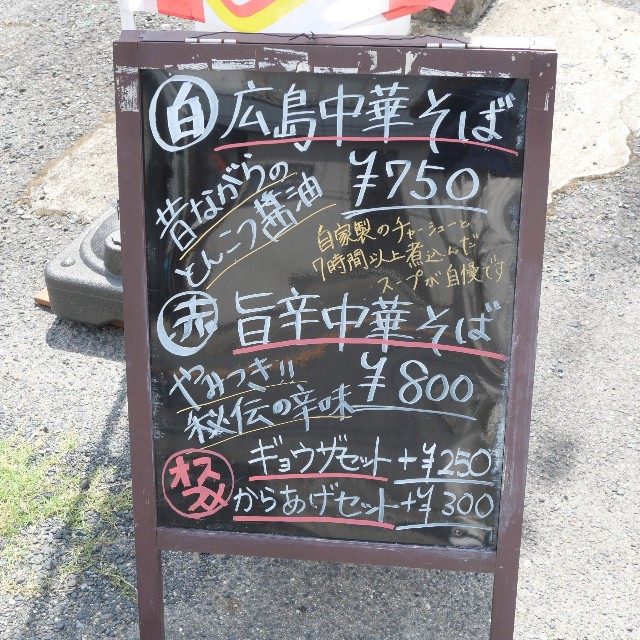 白 広島中華そば
昔ながらの
とんこつ醤油
¥750
自家製のチャーシューと
7時間以上煮込んだ
スープが自慢です
赤 旨辛中華そば
やみつき!!
秘伝の辛味
¥800
オススメ
ギョウザセット +¥250
からあげセット +¥300